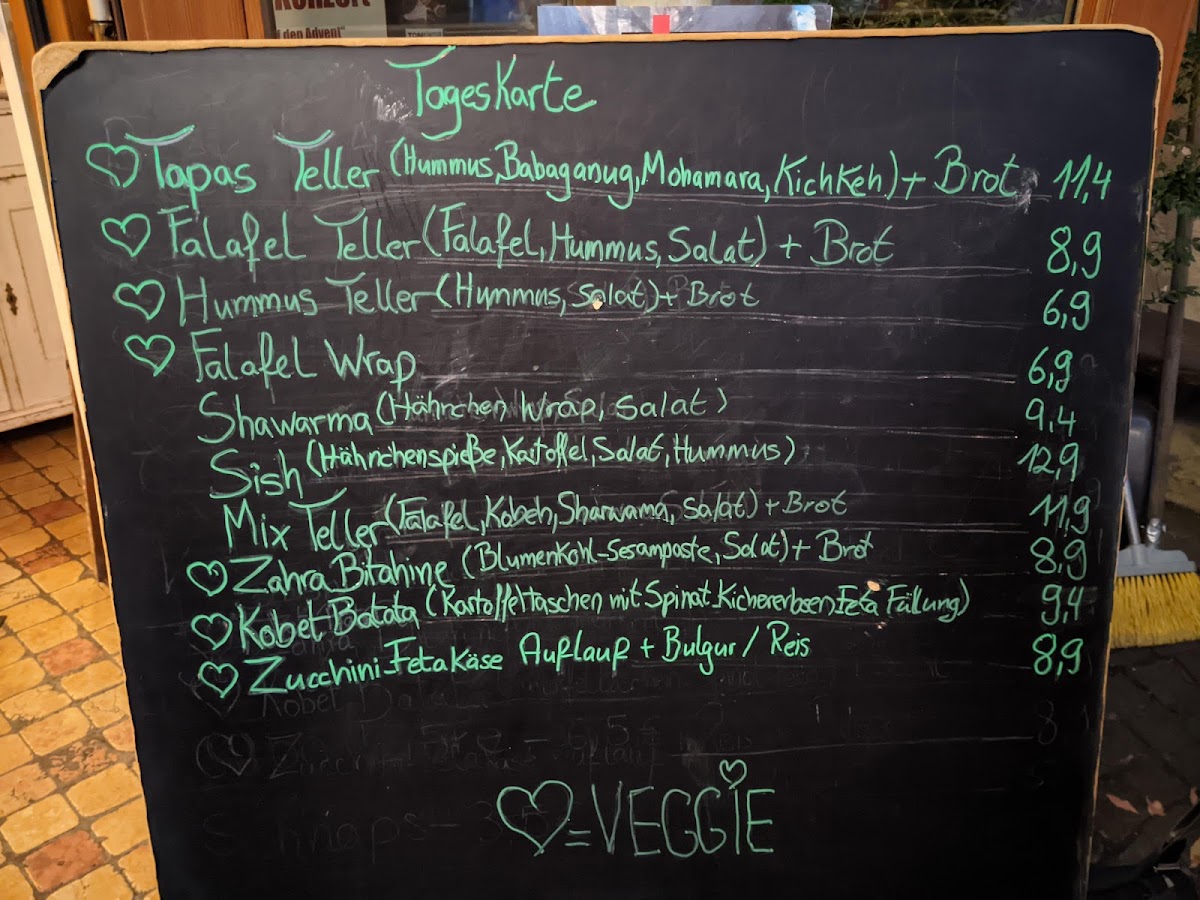 KONZERT
f den Advent"
TagesKarte
♡ Tapas Teller (Hummus, Babaganug, Mohamara, KichKeh) + Brot 11,4
♡ Falafel Teller (Falafel, Hummus, Salat) + Brot 8,9
♡ Hummus Teller (Hummus, Salat) + Brot 6,9
♡ Falafel Wrap 6,9
Shawarma (Hähnchen Wrap, Salat) 9,4
Sish (Hähnchenspieße, Kartoffel, Salat, Hummus) 12,9
Mix Teller (Falafel, Kobeh, Sharwama, Salat) + Brot 11,9
♡ Zahra Bitahine (Blumenkohl-Sesampaste, Salat) + Brot 8,9
♡ Kobet Batata (Kartoffeltaschen mit Spinat, Kichererbsen, Feta Füllung) 9,4
♡ Zucchini-FetaKäse Auflauf + Bulgur / Reis 8,9
♡ = VEGGIE